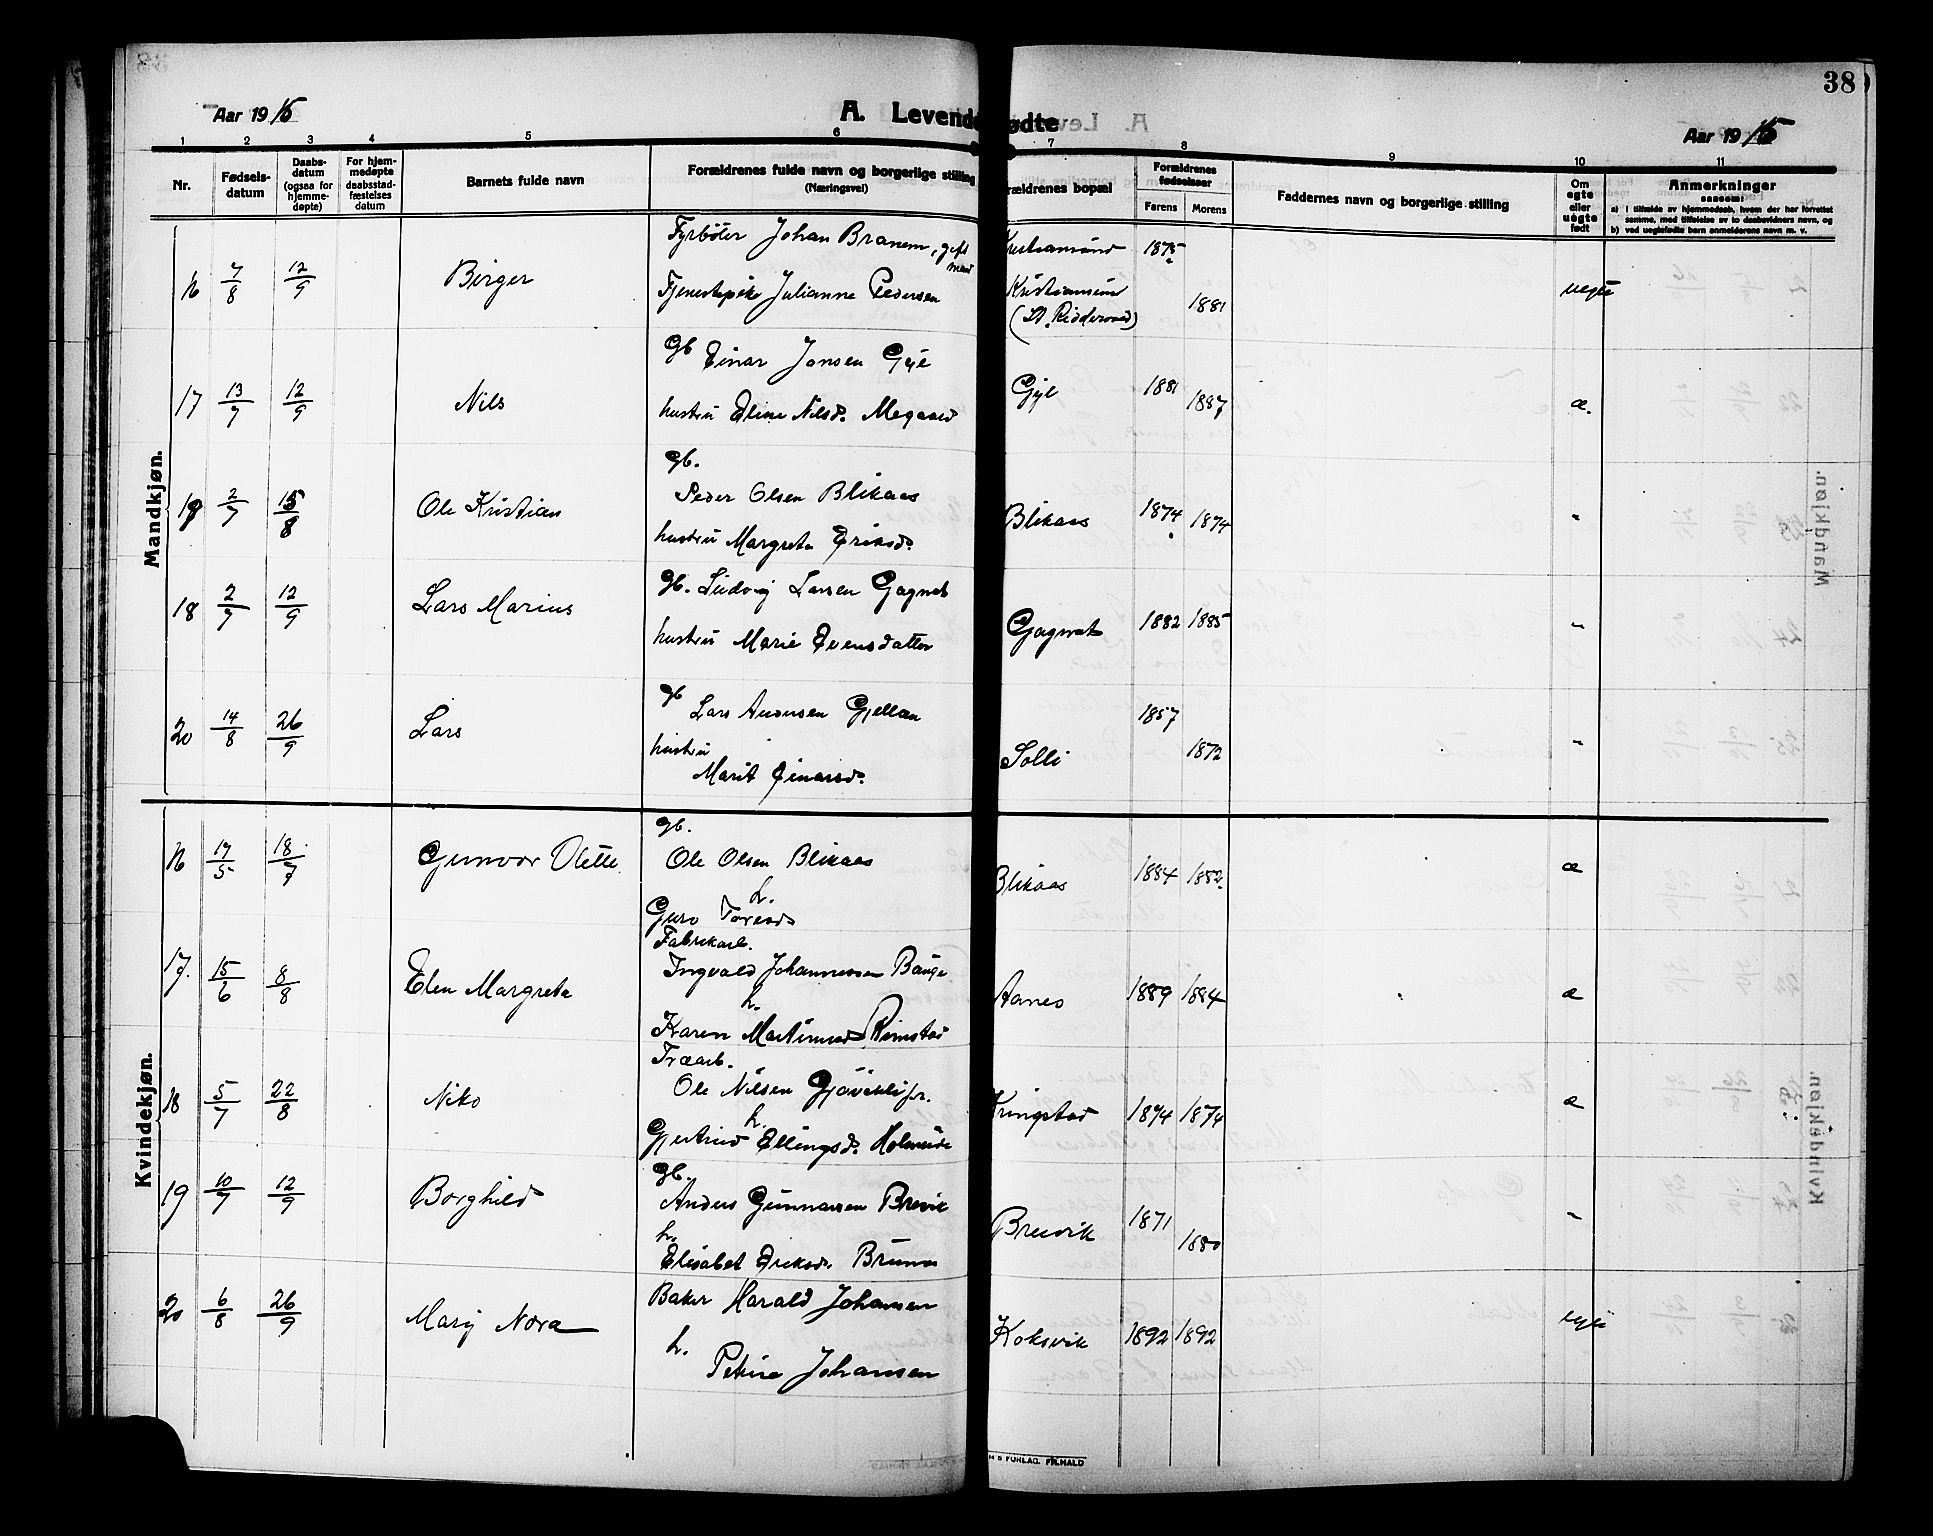 38
Aar 1915
A. Levendefødte
Aar 1915
1 2 3 4 5 6 7 8 9 10 11
Nr.
Fødsels-
datum
Daabs-
datum
(ogsaa for
hjemme-
døpte)
For hjem-
medøpte
daabsstad-
fæstelses
datum
Barnets fulde navn
Forældrenes fulde navn og borgerlige stilling
(Næringsvei)
rældrenes bopæl
Forældrenes
fødselsaar
Farens Morens
Faddernes navn og borgerlige stilling
Om
egte
eller
uegte
født
Anmerkninger
saasom:
a) i tilfælde av hjemmedaab, hvem der har forrettet
samme, med tilføielse av to daabsvidners navn, og
b) ved uegtefødte barn anmelderens navn m. v.
Mandkjøn.
Fyrbøter Johan Branem, gift mand Kristiansund 1875
16 7/8 12/9 Birger Tjenestepike Julianne Pedersen Kristiansund 1881 uegte
gb Einar Jonsen Gyl
17 13/7 12/9 Nils hustru Eline Nilsd. Megaard Gyl 1881 1887 æ.
gb.
Peder Olsen Blikaas
19 2/7 15/8 Ole Kristian hustru Margrete Eriksd. Blikaas 1874 1874 "
gb. Ludvig Larsen Gagnat
18 2/7 12/9 Lars Marius hustru Marie Evensdatter Gagnat 1882 1885 "
gb Lars Andersen Gjellan
20 14/8 26/9 Lars hustru Solli 1857 1872 "
Marit Einarsd.
Kvindekjøn.
gb.
16 17/5 18/7 Gunvor Olette Ole Olsen Blikaas Blikaas 1884 1882 æ
h.
Guro Toresd
Fabrikarb.
17. 15/6 8/8 Elen Margrete Ingvald Johannessen Bauge Aanes 1889 1884 æ
h.
Karen Martinusd Rimstad
Træarb.
18 5/7 22/8 Ole Nilsen Kringstad 1874 1874 æ
h.
Gjertrud Ellingsd. Holmeide
gb.
19 10/7 12/9 Borghild Anders Gunnarsen Brevik Breivik 1871 1880 "
h.
Elisabet Eriksd. Brunes
20 6/8 26/9 Mary Nora Baker Harald Johansen Koksvik 1892 1892
h.
Petrine Johansen
S FORLAG. FR.HALD